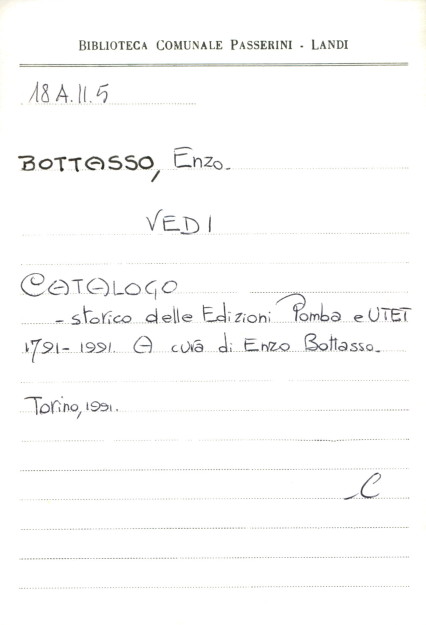 BIBLIOTECA COMUNALE PASSERINI - LANDI
18 A.II.5
BOTTASSO, Enzo.
VEDI
CATALOGO
- storico delle Edizioni Pomba e UTET
1791-1991. A cura di Enzo Bottasso.
Torino, 1991.
C